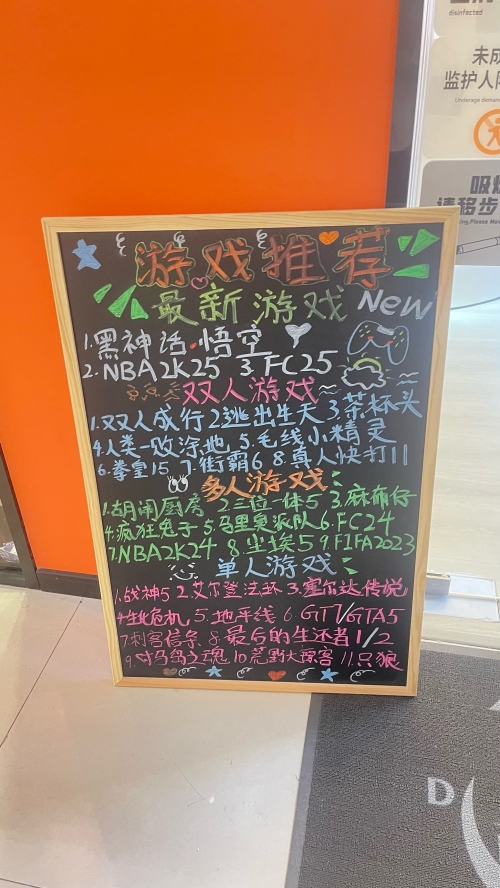 disinfected
未成
监护人陪
Underage deman
吸烟
请移步
游戏推荐
最新游戏 New
1.黑神话·悟空
2.NBA2K25 3.FC25
双人游戏
1.双人成行 2逃出生天 3茶杯头
4人类一败涂地 5.毛线小精灵
6.拳皇15 7街霸6 8.真人快打11
多人游戏
1.胡闹厨房 2三位一体5 3.麻布仔
4.疯狂兔子 5马里奥派队 6.FC24
7.NBA2K24 8尘埃5 9FIFA2023
单人游戏
1.战神5 2.艾尔登法环 3.塞尔达传说
4生化危机 5.地平线 6 GT7/GTA5
7刺客信条 8最后的生还者1/2
9.对马岛之魂 10荒野大镖客 11.只狼
D